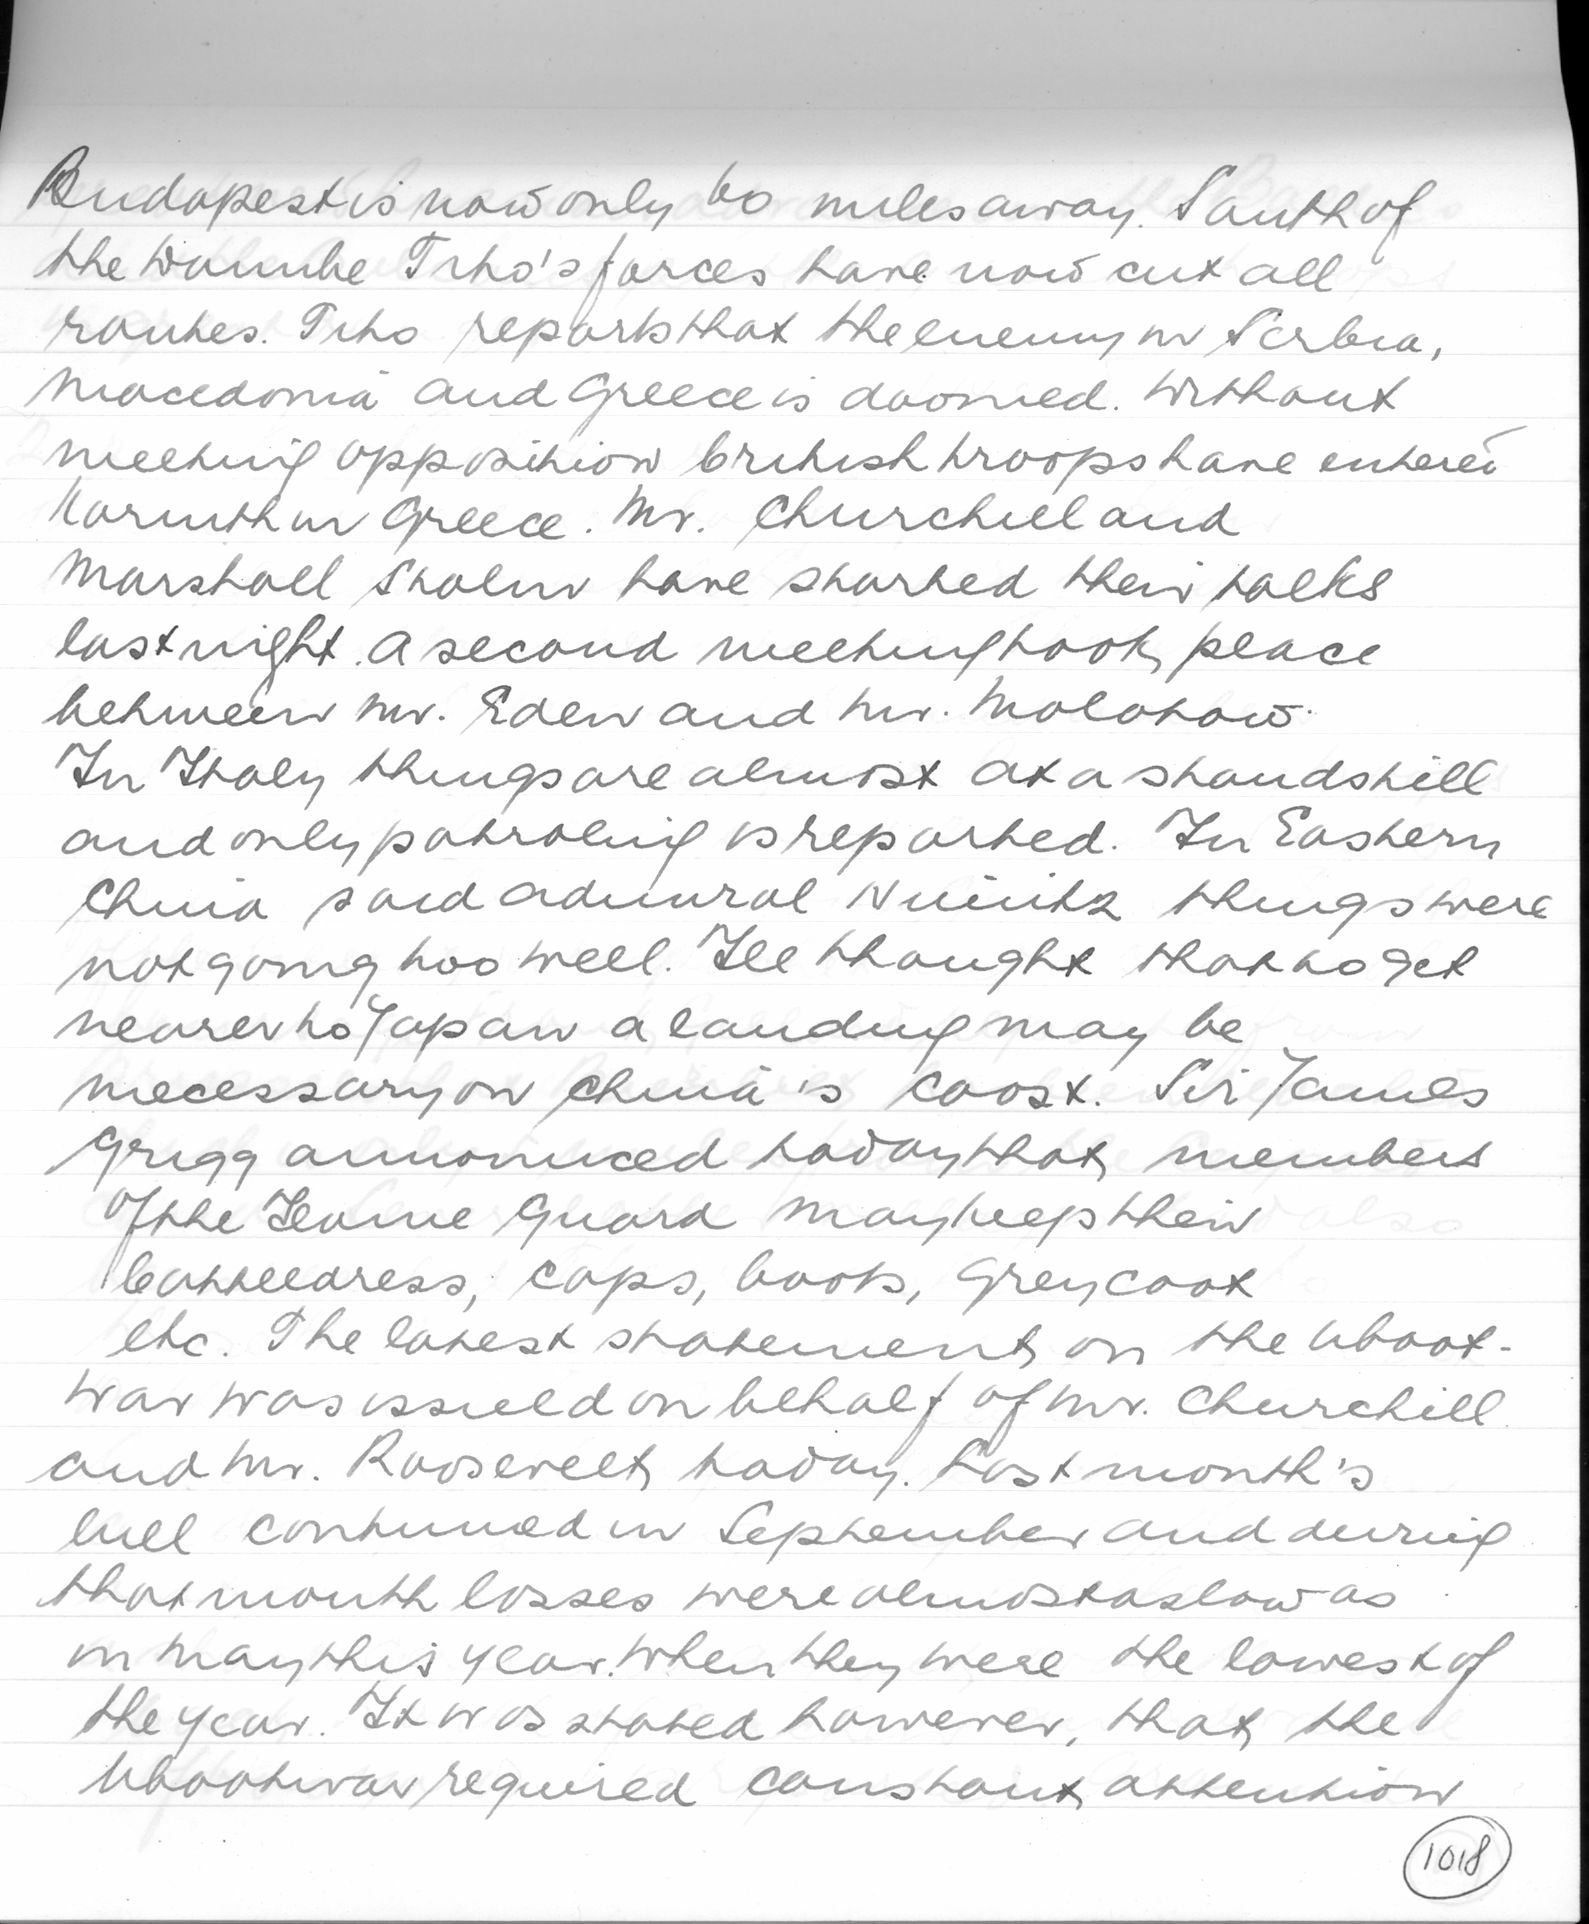 Budapest is now only 60 miles away. South of
the Danube Tito's forces have now cut all
routes. Tito reports that the enemy in Serbia,
Macedonia and Greece is doomed. Without
meeting opposition british troops have entered
Korinth in Greece. Mr. Churchill and
Marshall Stalin have started their talks
last night. A second meeting took place
between Mr. Eden and Mr. Molotow.
In Italy things are almost at a standstill
and only patroling is reported. In Eastern
China said admiral Nimitz things were
not going too well. He thought that to get
nearer to Japan a landing may be
necessary on China's coast. Sir James
Grigg announced today that members
of the Home Guard may keep their
battledress, caps, boots, Greycoat
etc. The latest statement on the uboat-
war was issued on behalf of Mr. Churchill
and Mr. Roosevelt today. Last month's
lull continued in September and during
that month losses were almost as low as
in May this year. When they were the lowest of
the year. It was stated however, that the
Uboatwar required constant attention
1018